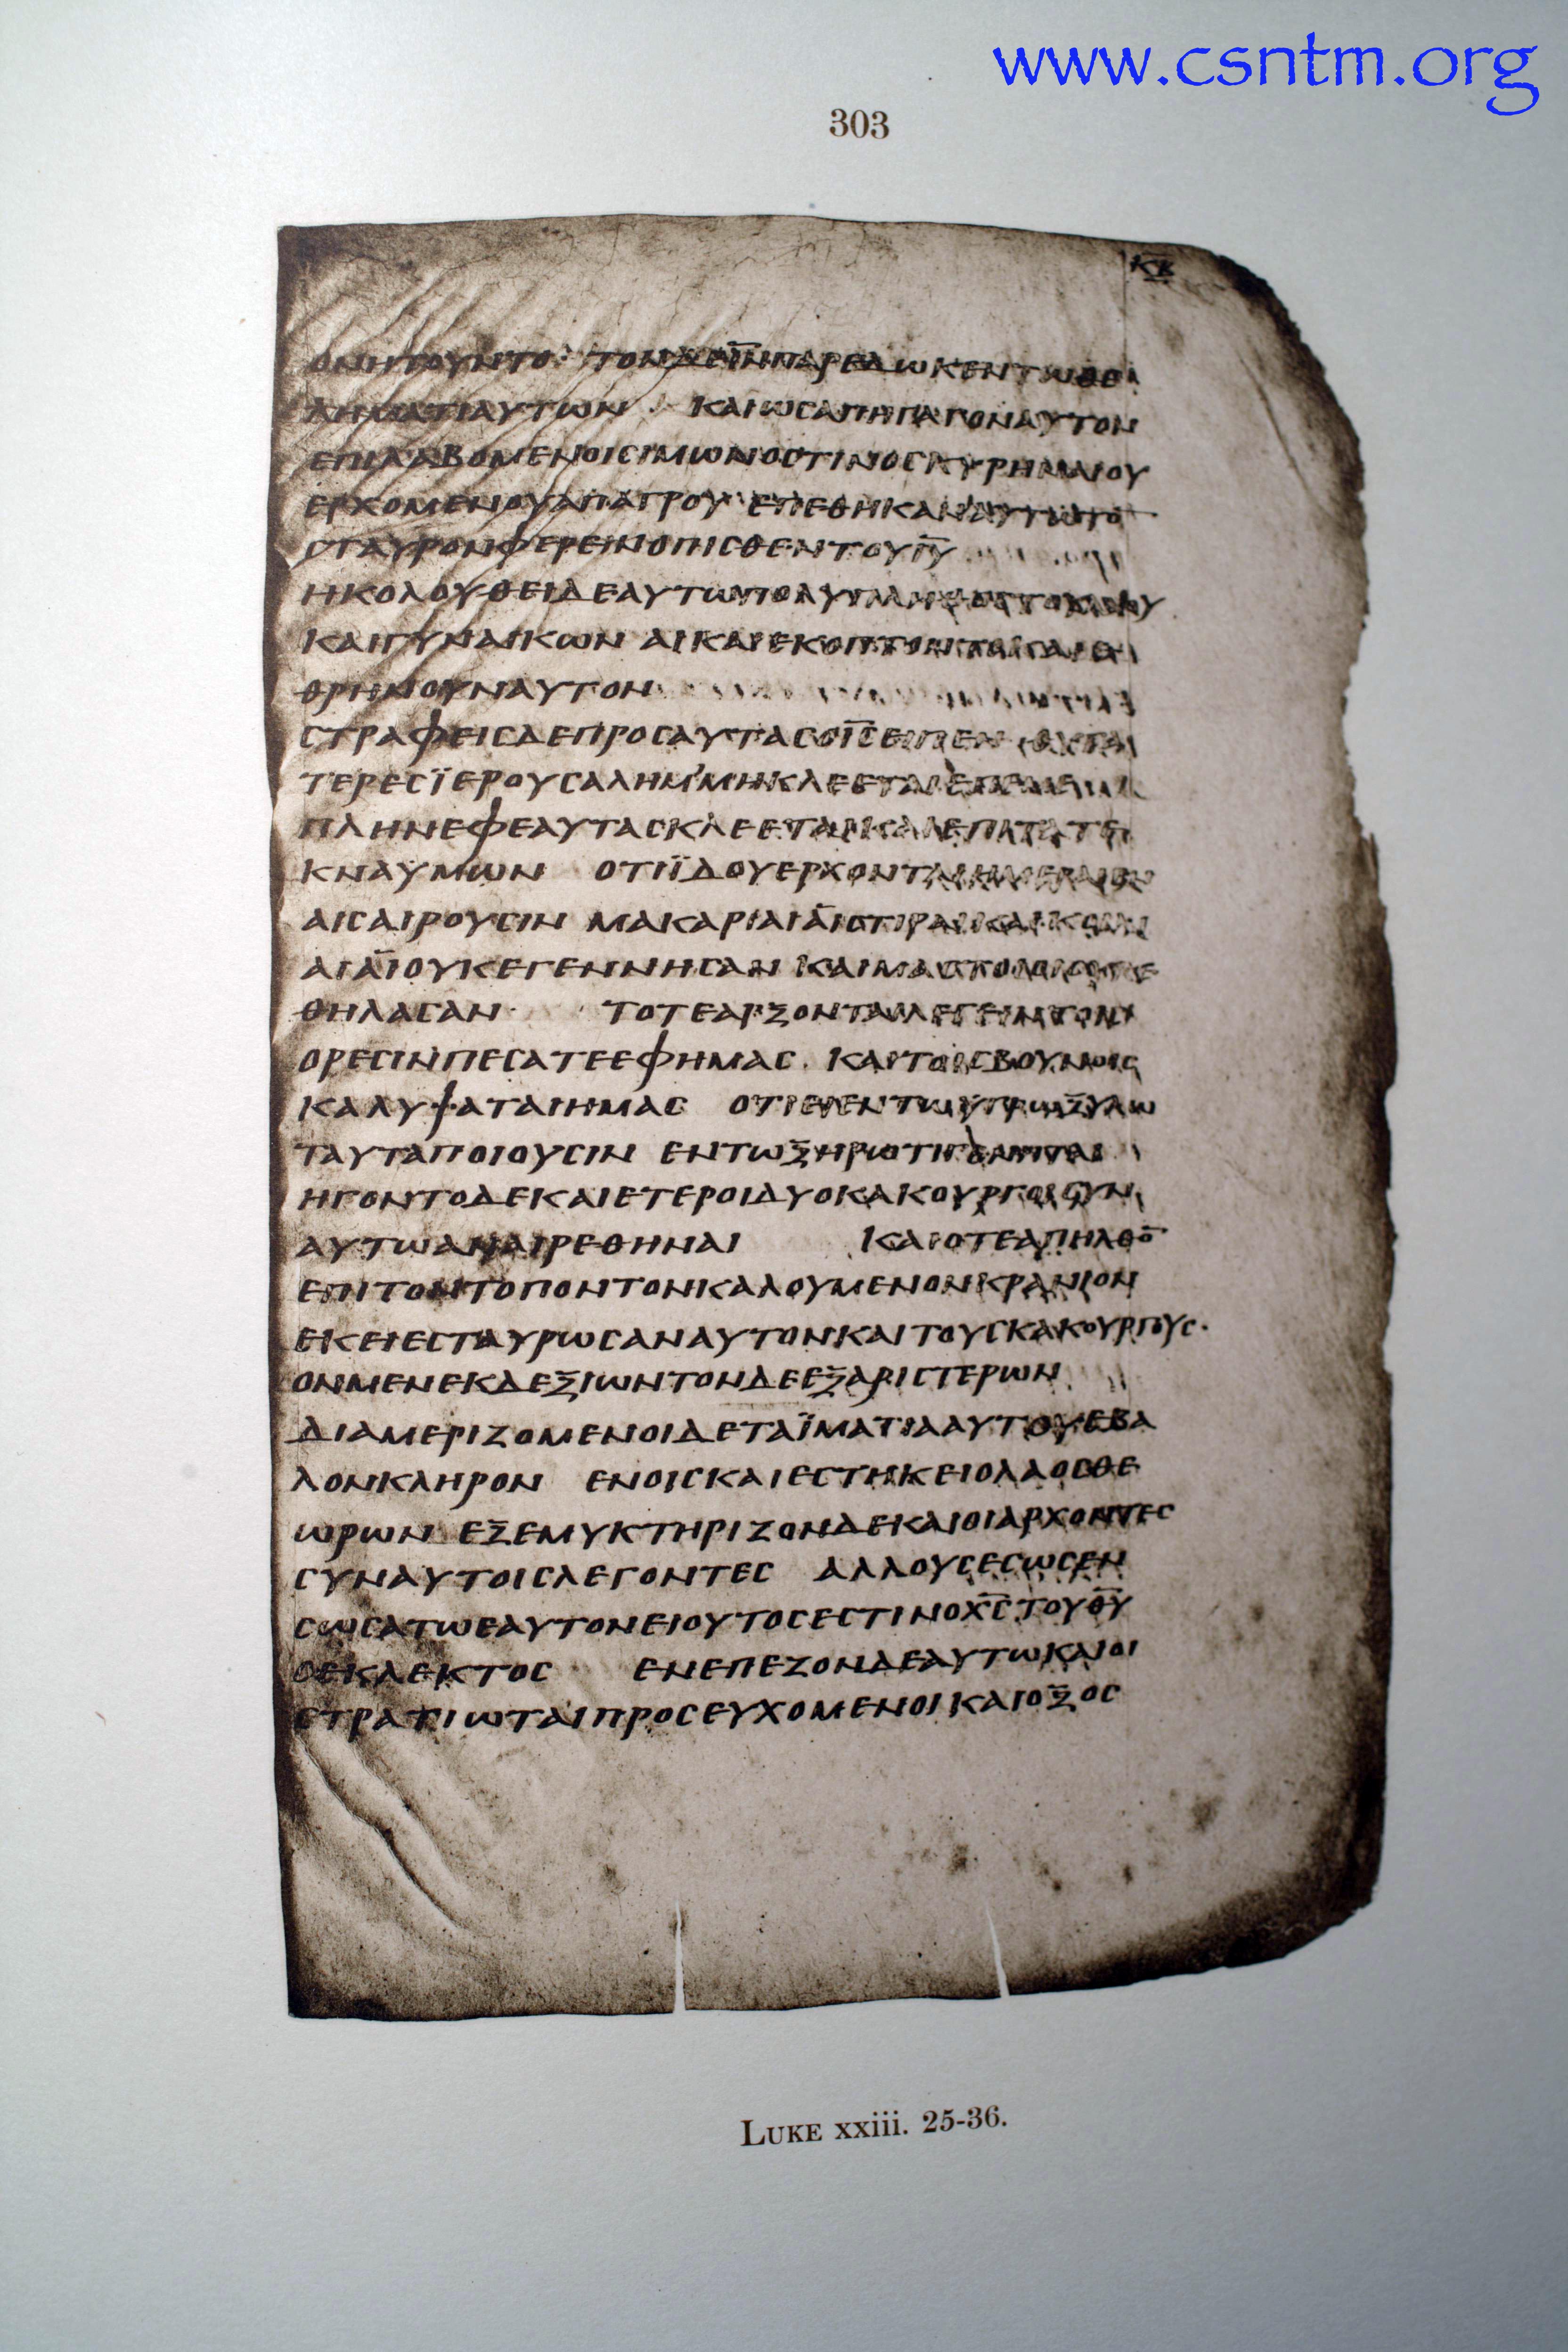 www.csntm.org
303
ΚΒ
ΟΝΗΤΟΥΝΤΟ· ΤΟΝΔΕΙ̅Ν̅ΠΑΡΕΔΩΚΕΝΤΩΘΕ
ΛΗΜΑΤΙΑΥΤΩΝ· ΚΑΙΩCΑΠΗΓΑΓΟΝΑΥΤΟΝ
ΕΠΙΛΑΒΟΜΕΝΟΙCΙΜΩΝΟCΤΙΝΟCΚΥΡΗΝΑΙΟΥ
ΕΡΧΟΜΕΝΟΥΑΠΑΓΡΟΥ· ΕΠΕΘΗΚΑΝΑΥΤΩΤΟ
CΤΑΥΡΟΝΦΕΡΕΙΝΟΠΙCΘΕΝΤΟΥΙ̅Υ̅
ΗΚΟΛΟΥΘΕΙΔΕΑΥΤΩΠΟΛΥΠΛΗΘΟCΤΟΥΛΑΟΥ
ΚΑΙΓΥΝΑΙΚΩΝ ΑΙΚΑΙΕΚΟΠΤΟΝΤΟΚΑΙΕ
ΘΡΗΝΟΥΝΑΥΤΟΝ
CΤΡΑΦΕΙCΔΕΠΡΟCΑΥΤΑCΟΙ̅C̅ΕΙΠΕΝ ΘΥΓΑ
ΤΕΡΕCΪΕΡΟΥCΑΛΗΜ'ΜΗΚΛΕΕΤΑΙΕΠΕΜΕ
ΠΛΗΝΕΦΕΑΥΤΑCΚΛΕΕΤΑΙΚΑΙΕΠΙΤΑΤΕ
ΚΝΑΥΜΩΝ ΟΤΙΪΔΟΥΕΡΧΟΝΤΑΙΗΜΕΡΑΙΕΝ
ΑΙCΑΙΡΟΥCΙΝ ΜΑΚΑΡΙΑΙΑΙCΤΙΡΑΙΚΑΙΚΟΙΛΙ
ΑΙΑΙΟΥΚΕΓΕΝΝΗCΑΝ ΚΑΙΜΑCΤΟΙΟΙΟΥΚΕ
ΘΗΛΑCΑΝ· ΤΟΤΕΑΡΞΟΝΤΑΙΛΕΓΕΙΝΤΟΙC
ΟΡΕCΙΝΠΕCΑΤΕΕΦΗΜΑC· ΚΑΙΤΟΙCΒΟΥΝΟΙC
ΚΑΛΥΨΑΤΑΙΗΜΑC ΟΤΙΕΙΕΝΤΩΥΓΡΩΞΥΛΩ
ΤΑΥΤΑΠΟΙΟΥCΙΝ ΕΝΤΩΞΗΡΩΤΙΓΕΝΗΤΑΙ
ΗΓΟΝΤΟΔΕΚΑΙΕΤΕΡΟΙΔΥΟΚΑΚΟΥΡΓΟΙCΥΝ
ΑΥΤΩΑΝΑΙΡΕΘΗΝΑΙ ΚΑΙΟΤΕΑΠΗΛΘΟ̅
ΕΠΙΤΟΝΤΟΠΟΝΤΟΝΚΑΛΟΥΜΕΝΟΝΚΡΑΝΙΟΝ
ΕΚΕΙΕCΤΑΥΡΩCΑΝΑΥΤΟΝΚΑΙΤΟΥCΚΑΚΟΥΡΓΟΥC·
ΟΝΜΕΝΕΚΔΕΞΙΩΝΤΟΝΔΕΕΞΑΡΙCΤΕΡΩΝ
ΔΙΑΜΕΡΙΖΟΜΕΝΟΙΔΕΤΑΪΜΑΤΙΑΑΥΤΟΥΕΒΑ
ΛΟΝΚΛΗΡΟΝ ΕΝΟΙCΚΑΙΕCΤΗΚΕΙΟΛΑΟCΘΕ
ΩΡΩΝ ΕΞΕΜΥΚΤΗΡΙΖΟΝΔΕΚΑΙΟΙΑΡΧΟΝΤΕC
CΥΝΑΥΤΟΙCΛΕΓΟΝΤΕC ΑΛΛΟΥCΕCΩCΕΝ
CΩCΑΤΩΕΑΥΤΟΝΕΙΟΥΤΟCΕCΤΙΝΟΧ̅C̅ΤΟΥΘ̅Υ̅
ΟΕΚΛΕΚΤΟC ΕΝΕΠΕΖΟΝΔΕΑΥΤΩΚΑΙΟΙ
CΤΡΑΤΙΩΤΑΙΠΡΟCΕΥΧΟΜΕΝΟΙΚΑΙΟΞΟC
LUKE xxiii. 25-36.